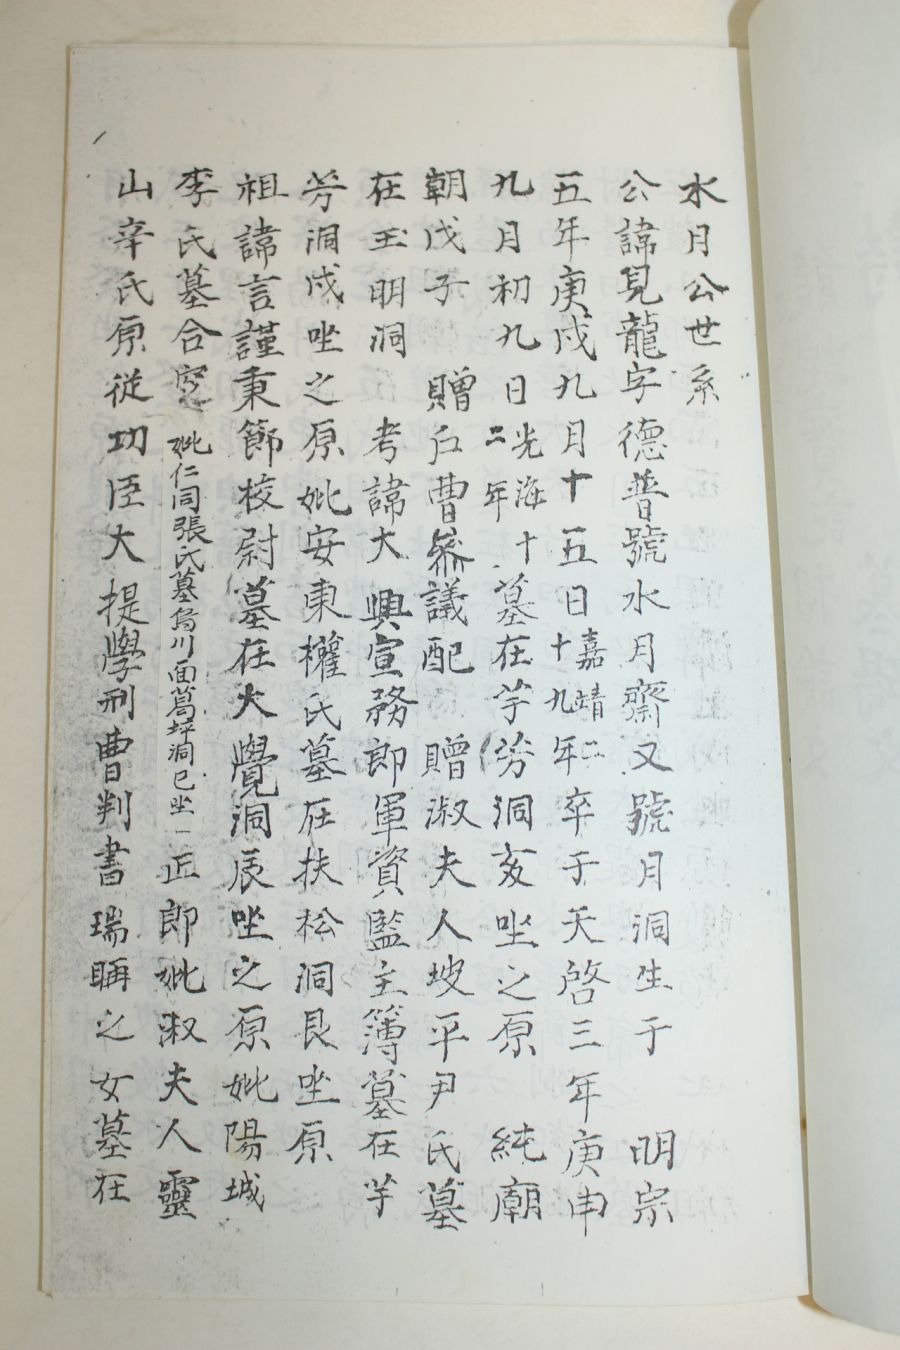 水月公世系
公諱見龍字德普號水月齋又號月洞生于 明宗
五年庚戌九月十五日嘉靖二十九年卒于天啓三年庚申
九月初九日光海十二年墓在芋芳洞亥坐之原 純廟
朝戊子 贈戶曹參議配 贈淑夫人坡平尹氏墓
在玉明洞 考諱大興宣務郎軍資監主簿墓在芋
芳洞戌坐之原妣安東權氏墓在扶松洞艮坐原
祖諱言謹秉節校尉墓在大覺洞辰坐之原妣陽城
李氏墓合窆妣仁同張氏墓烏川面葛坪洞巳坐 正郎妣淑夫人靈
山辛氏原從功臣大提學刑曹判書瑞 之女墓在